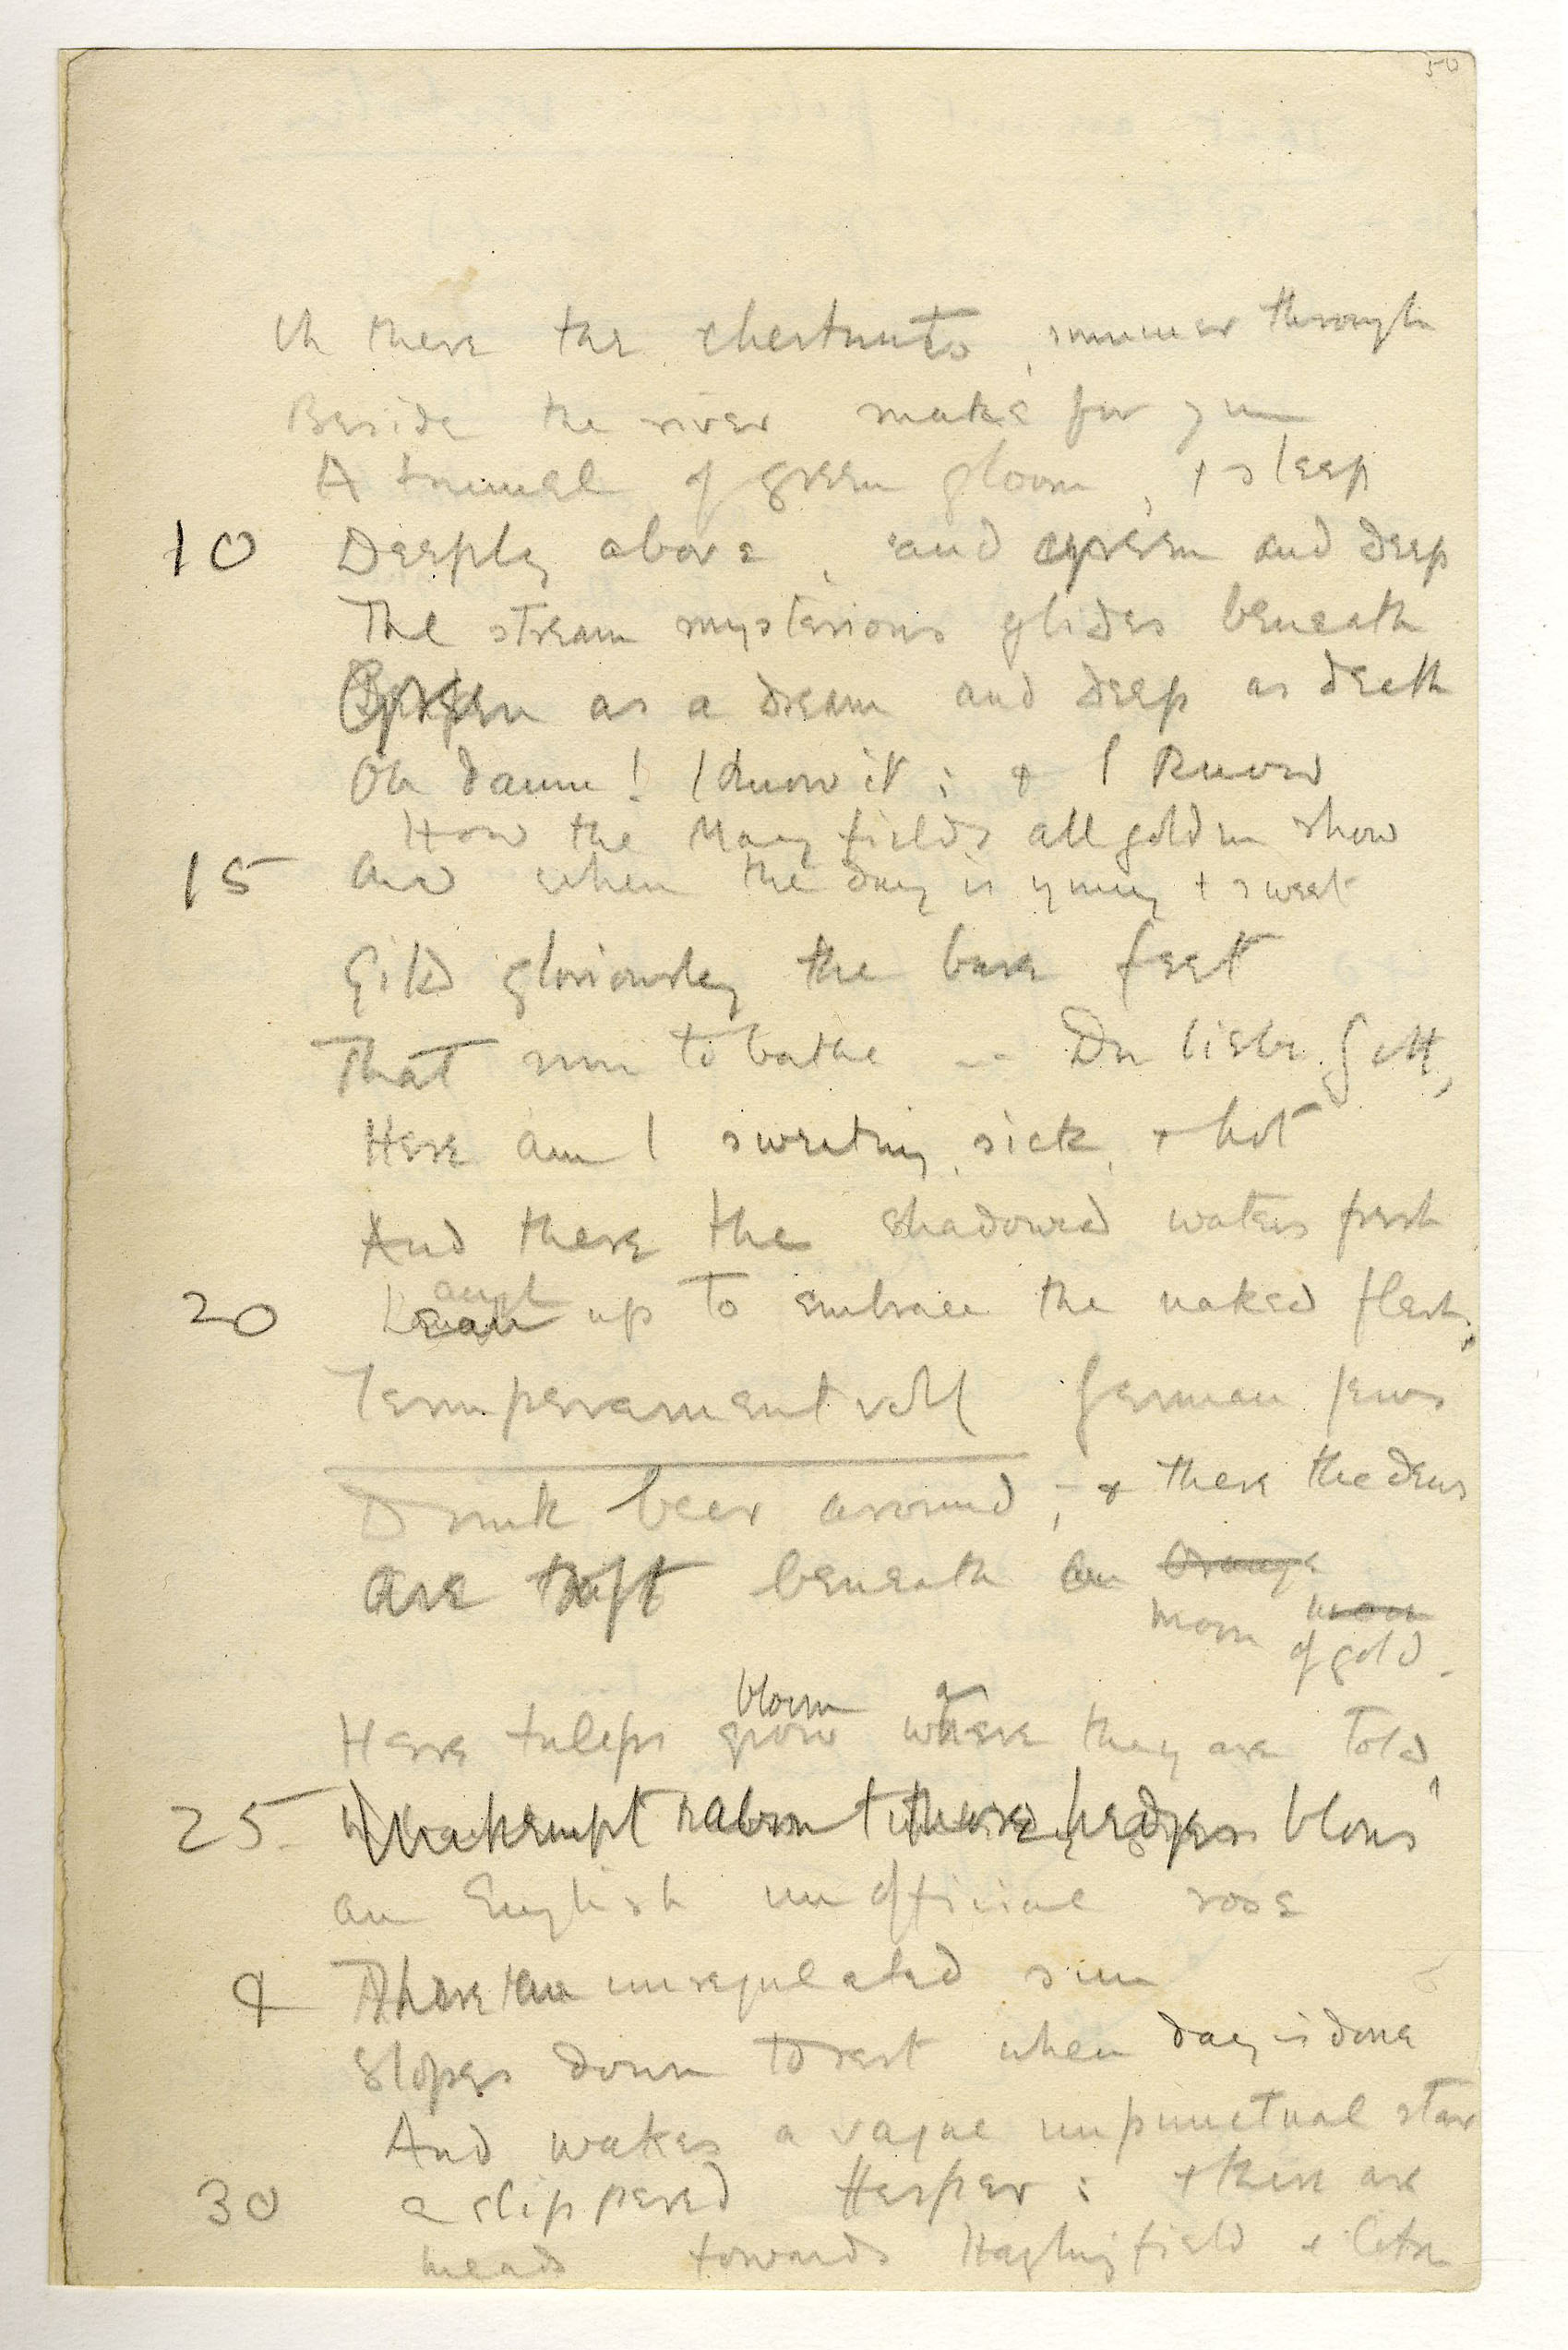 50
Oh there the chestnuts, summer through
Beside the river make for you
A tunnel of green gloom, + sleep
10 Deeply above, and green and deep
The stream mysterious glides beneath
Green as a dream and deep as death
Oh damn! I know it: & I know
How the May fields all golden show
15 And when the day is young + sweet
Gild gloriously the bare feet
That run to bathe -- Du liebe Gott,
Here am I sweating, sick, + hot
And there the shadowed waters fresh
20 Lean up to embrace the naked flesh;
Temperamentvoll German Jews
Drink beer around, - & there the dews
Are soft beneath a orange
morn moon
of gold.
bloom a
Here tulips grow where they are told,
25 Unkempt about those hedges blows
an English unofficial rose
& There the unregulated sun
Slopes down to rest when day is done
And wakes a vague unpunctual star
30 a slippered Hesper: + there are
meads towards Haslingfield + Coton